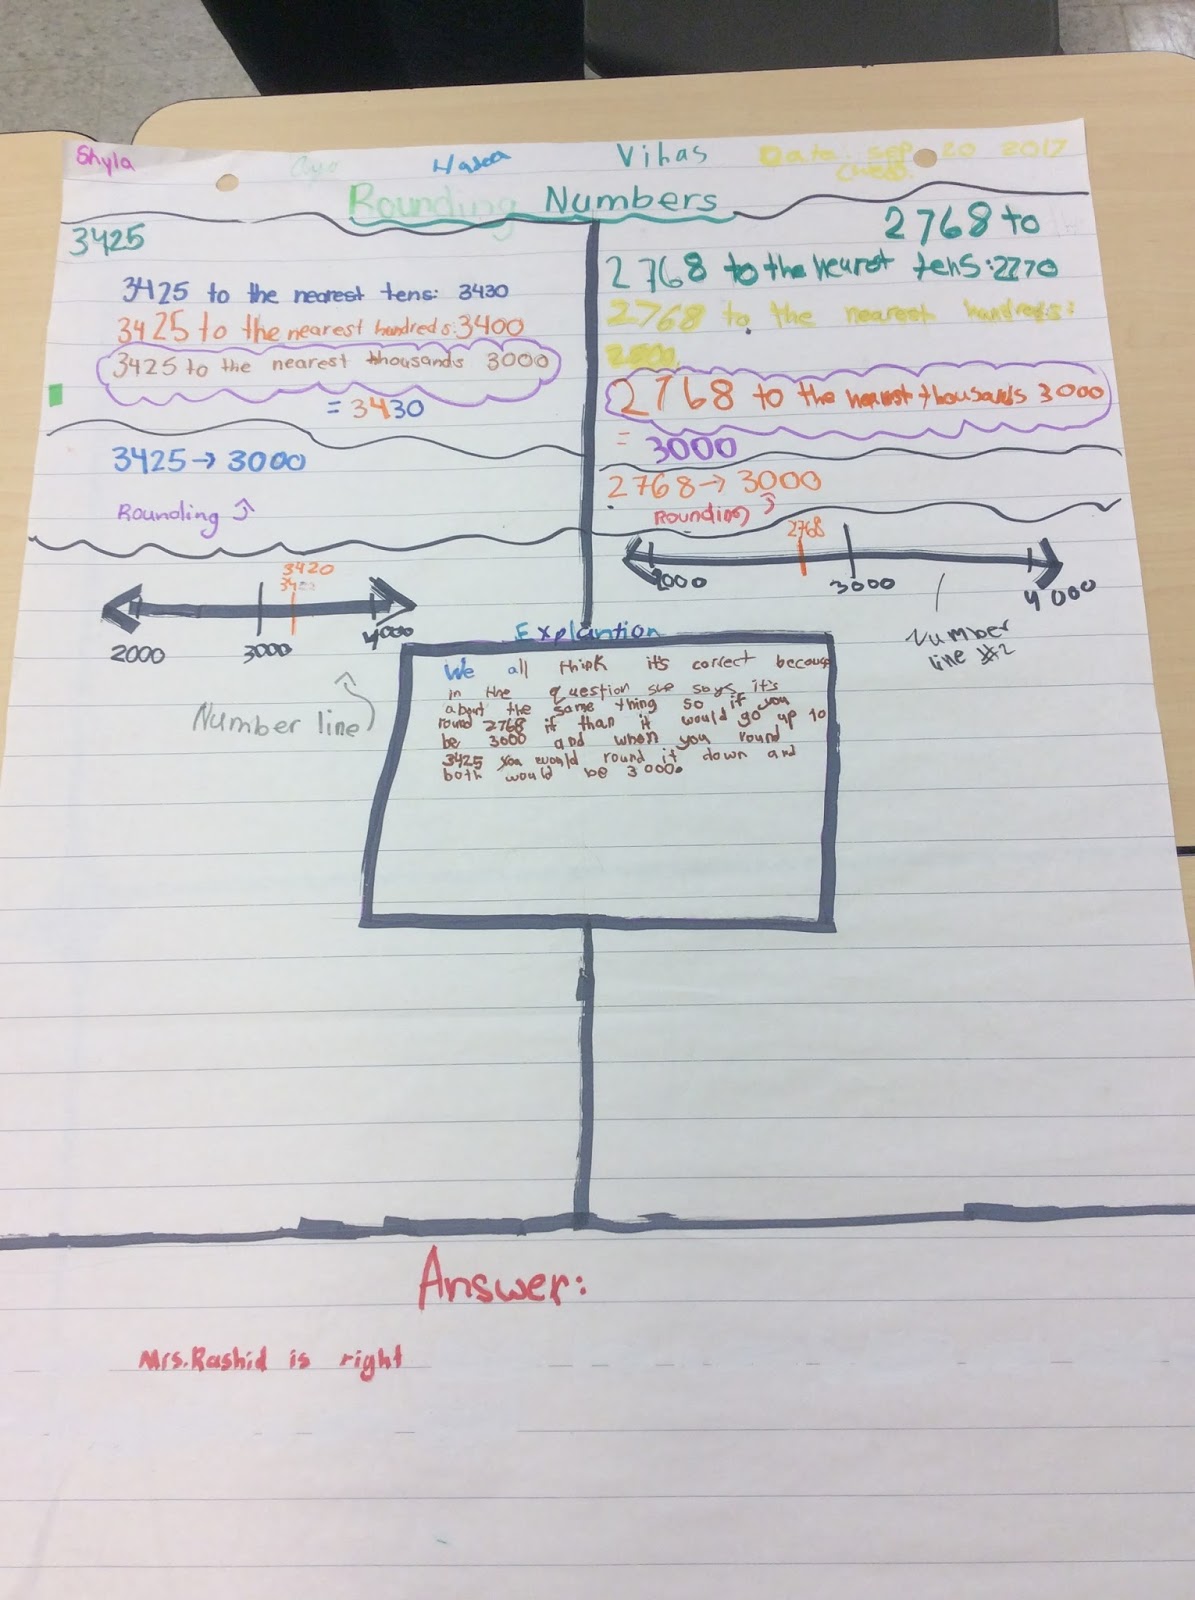 Shyla Ayo Vihas Data: sep 20 2017
Rounding Numbers
3425
3425 to the nearest tens: 3430
3425 to the nearest hundreds: 3400
3425 to the nearest thousands 3000
= 3430
3425 → 3000
Rounding
3420
2000 3000 4000
Number line
2768 to
2768 to the nearest tens: 2770
2768 to the nearest hundreds:
2768 to the nearest thousands 3000
= 3000
2768 → 3000
Rounding
2768
2000 3000 4000
Number
line #2
Explantion
We all think it's correct because
in the question she says it's
about the same thing so if you
round 2768 if than it would go up to
be 3000 and when you round
3425 you would round it down and
both would be 3000.
Answer:
Mrs.Rashid is right